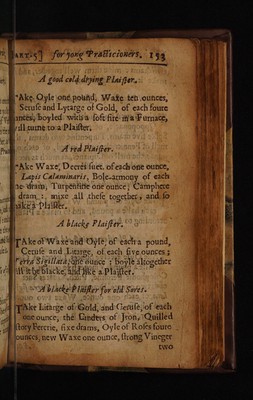 ART. 5] for yong Practicioners. 153
A good cold drying Plaister.
Ake Oyle one pound, Waxe ten ounces,
Seruse and Lytarge of Gold, of each foure
unces, boyled with a soft fire in a Furnace,
ill turne to a Plaister.
A red Plaister.
Ake Waxe, Deeres suet, of each one ounce,
Lapis Calaminaris, Bole-armony of each
ne dram, Turpentine one ounce; Camphere
dram: mixe all these together, and so
ake a Plaister.
A blacke Plaister.
TAke of Waxe and Oyle, of each a pound,
Ceruse and Litarge, of each five ounces;
Terra Sigillata, one ounce: boyle altogether
ill it be blacke, and like a Plaister.
A blacke Plaister for old Sores.
TAke Litarge of Gold, and Ceruse, of each
one ounce, the of Iron, Quilled
story Ferrrie, sixe drams, Oyle of Roses foure
ounces, new Waxe one ounce, strong Vineger
two